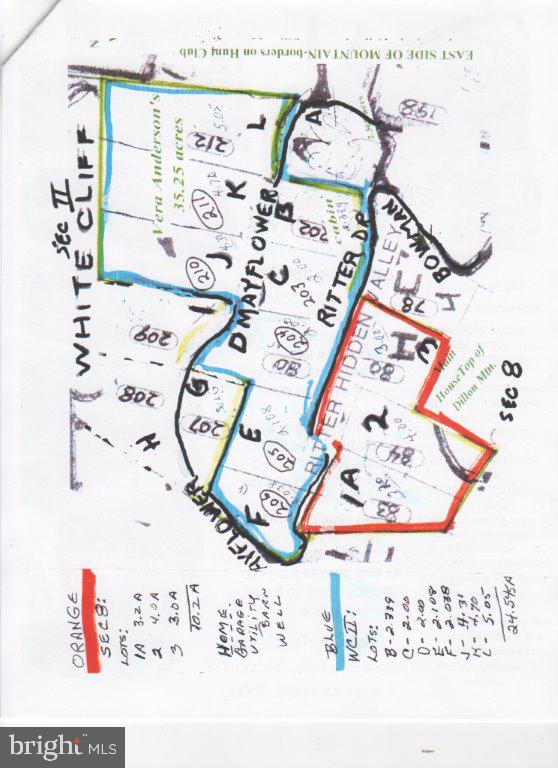 EAST SIDE OF MOUNTAIN-borders on Hunt Club
Vera Anderson's
35.25 acres
SEC II
WHITE CLIFF
L
K
J
I
212
5.05
211
4.70
210
209
208
207
H
G
A
B
C
D
E
F
MAYFLOWER
MAYFLOWER
cabin
2.339
202
203
204
205
206
80
2.108
RITTER DR
RITTER HIDDEN VALLEY
198
BOWMAN
78
80
3
2
84
1A
83
Main
House Top of
Dillon Mtn.
SEC 8
ORANGE
SEC 8:
LOTS:
1A 3.2A
2 4.0A
3 3.0A
10.2A
HOME
GARAGE
UTILITY
BARN
WELL
BLUE
WC II:
LOTS:
B-2.339
C-2.00
D-2.00
E-2.108
F-2.038
J-4.31
K-4.70
L-5.05
24.545A
bright MLS